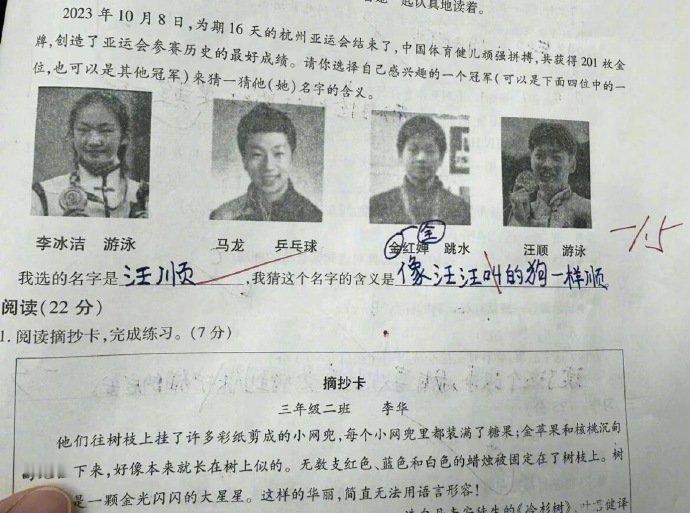 起认真地读着。
2023 年 10 月 8 日,为期 16 天的杭州亚运会结束了,中国体育健儿顽强拼搏,共获得 201 枚金
牌,创造了亚运会参赛历史的最好成绩。请你选择自己感兴趣的一个冠军(可以是下面四位中的一
位,也可以是其他冠军)来猜一猜他(她)名字的含义。
李冰洁 游泳 马龙 乒乓球 金红婵 跳水 汪顺 游泳
全
-1.5
我选的名字是汪顺,我猜这个名字的含义是像汪汪叫的狗一样顺
阅读(22 分)
1. 阅读摘抄卡,完成练习。(7 分)
摘抄卡
三年级二班 李华
他们往树枝上挂了许多彩纸剪成的小网兜,每个小网兜里都装满了糖果;金苹果和核桃沉甸
下来,好像本来就长在树上似的。无数支红色、蓝色和白色的蜡烛被固定在了树枝上。树
是一颗金光闪闪的大星星。这样的华丽,简直无法用语言形容!
《冷杉树》